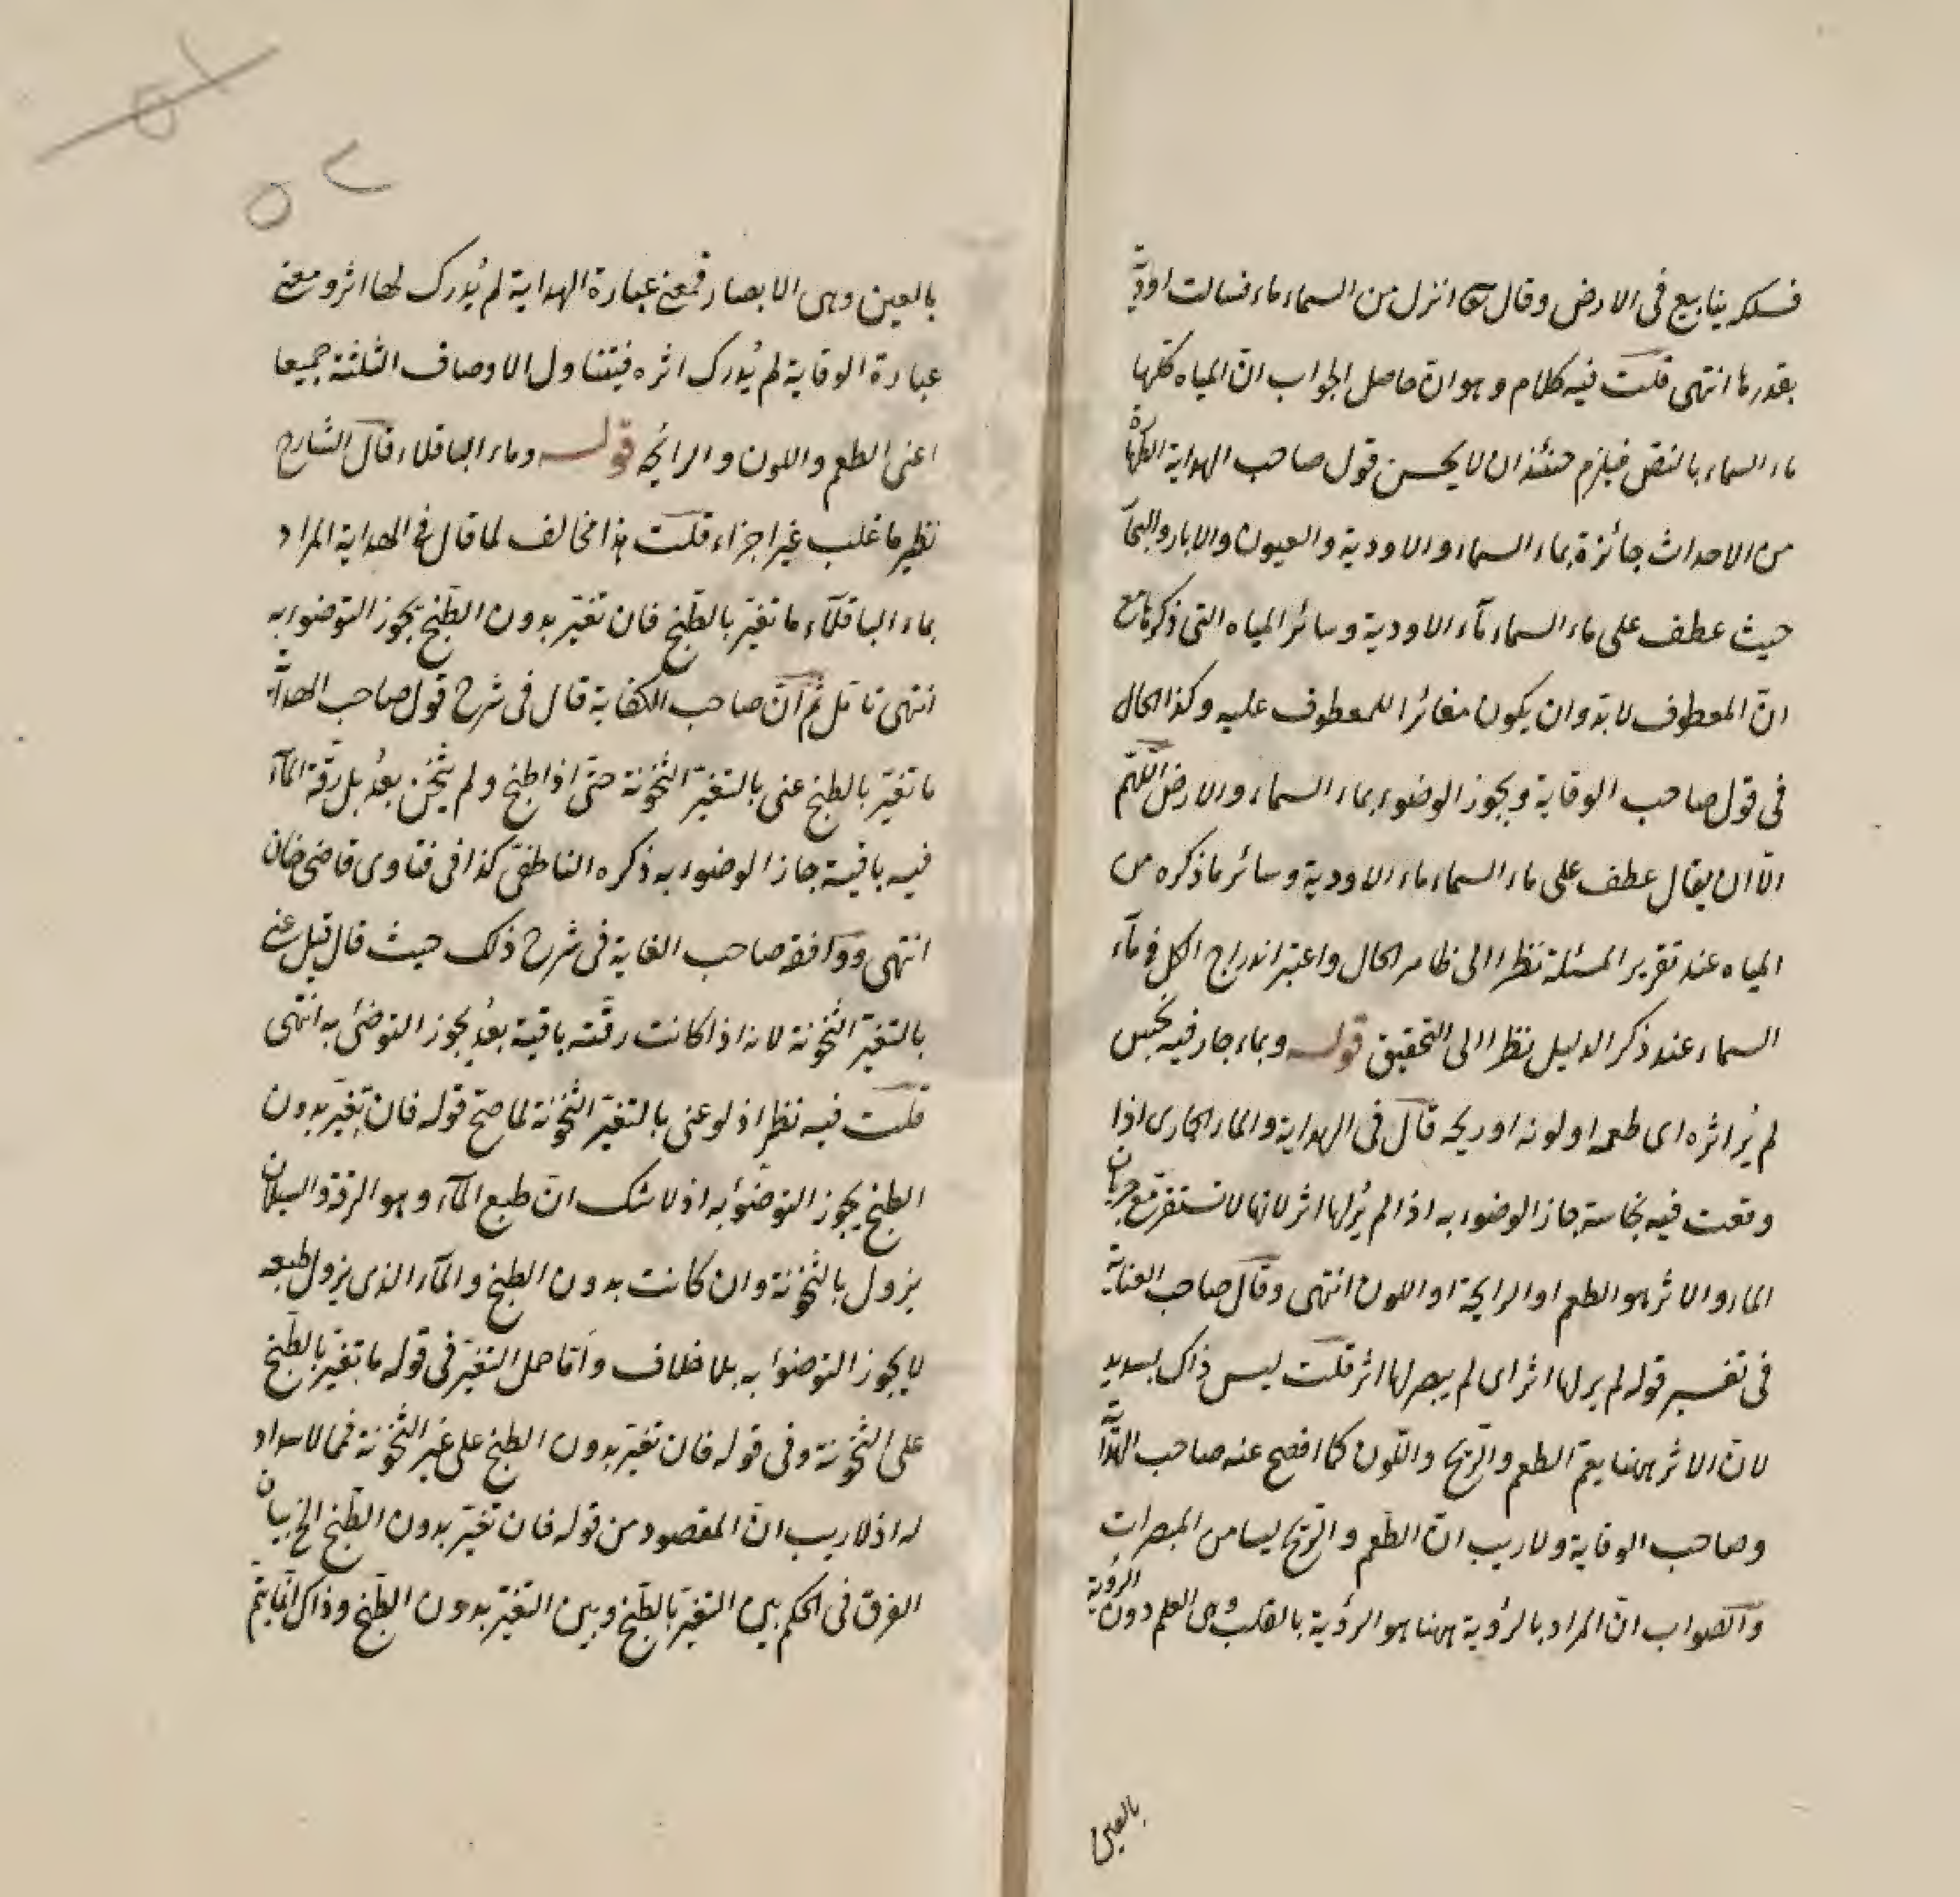 فسلكه ينابيع فى الارض وقال تعا انزل من السماء ماء فسالت اودية
بقدرها انتهى قلت فيه كلام وهو ان حاصل الجواب ان المياه كلها
ماء السماء بالنص فيلزم حينئذ ان لا يحسن قول صاحب الهداية الطهارة
من الاحداث جائزة بماء السماء والاودية والعيون والابار والبحار
حيث عطف على ماء السماء مآء الاودية وسائر المياه التى ذكرها مع
ان المعطوف لا بد وان يكون مغائرا للمعطوف عليه وكذا الحال
فى قول صاحب الوقاية ويجوز الوضوء بماء السماء والارض اللّهم
الّا ان يقال عطف على ماء السماء ماء الاودية وسائر ما ذكره من
المياه عند تقرير المسئلة نظرا الى ظاهر الحال واعتبر اندراج الكل فى مآء
السماء عند ذكر الدليل نظرا الى التحقيق قوله وبماء جار فيه نجس
لم يُر اثره اى طعمه او لونه او ريحه قال فى الهداية والماء الجارى اذا
وقعت فيه نجاسة جاز الوضوء به اذا لم يُر لها اثر لانها لا تستقر مع جريان
الماء والاثر هو الطعم او الرايحة او اللون انتهى وقال صاحب العناية
فى تفسير قوله لم ير لها اثر اى لم يبصر لها اثر قلت ليس ذاك بسديد
لان الاثر ههنا يعمّ الطعم والرّيح واللّون كما افصح عنه صاحب الهداية
وصاحب الوقاية ولا ريب انّ الطّعم والرّيح ليسا من المبصرات
والصّواب انّ المراد بالرؤية ههنا هو الرؤية بالقلب وهى العلم دون الرؤية
بالعين
بالعين وهى الابصار فمعنى عبارة الهداية لم يُدرك لها اثر ومعنى
عبارة الوقاية لم يُدرك اثره فيتناول الاوصاف الثلثة جميعا
اعنى الطعم واللون والرايحة قوله وماء الباقلاء قال الشارح
نظير ما غلب غير اجزاء قلت هذا مخالف لما قال فى الهداية المراد
بماء الباقلآء ما تغيّر بالطّبخ فان تغيّر بدون الطّبخ يجوز التوضوء به
انتهى تامّل ثم انّ صاحب الكفاية قال فى شرح قول صاحب الهداية
ما تغيّر بالطبخ عنى بالتغيّر الثخونة حتّى اذا طبخ ولم يثخن بعدُ بل رقّة المآء
فيه باقية جاز الوضوء به ذكره الناطفى كذا فى فتاوى قاضى خان
انتهى ووافقه صاحب الغاية فى شرح ذلك حيث قال قيل عنى
بالتغيّر الثخونة لانه اذا كانت رقّته باقية بعدُ يجوز التوضئ به انتهى
قلت فيه نظر اذ لو عنى بالتغيّر الثخونة لما صحّ قوله فان تغيّر بدون
الطبخ يجوز التوضوء به اذ لا شك انّ طبع المآء وهو الرقة والسيلان
يزول بالثخونة وان كانت بدون الطبخ والمآء الذى يزول طبعه
لا يجوز التوضوء به بلا خلاف وامّا حمل التغيّر فى قوله ما تغيّر بالطّبخ
على الثخونة وفى قوله فان تغيّر بدون الطبخ على غير الثّخونة فمما لا سداد
له اذ لا ريب انّ المقصود من قوله فان تغيّر بدون الطّبخ الخ بيان
الفرق فى الحكم بين التغيّر بالطّبخ وبين التغيّر بدون الطّبخ وذاك انّما يتمّ